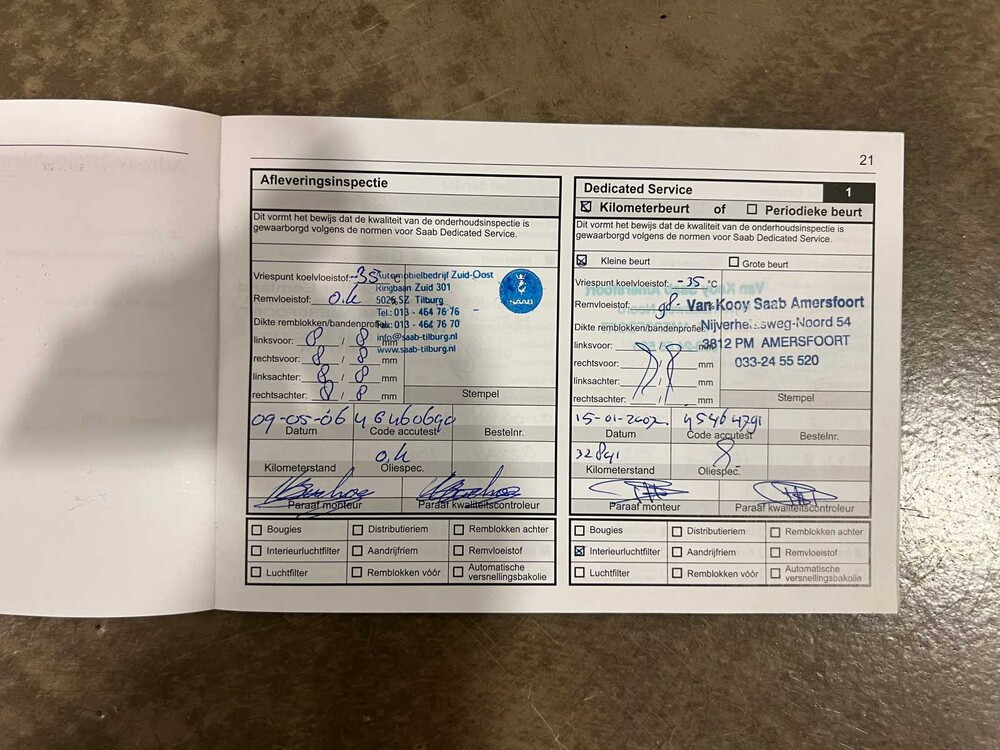 21
Afleveringsinspectie
Dit vormt het bewijs dat de kwaliteit van de onderhoudsinspectie is
gewaarborgd volgens de normen voor Saab Dedicated Service.
Vriespunt koelvloeistof: -35
Remvloeistof: o.k
Dikte remblokken/bandenprofiel:
linksvoor: 8 / 8 mm
rechtsvoor: 8 / 8 mm
linksachter: 8 / 8 mm
rechtsachter: 8 / 8 mm
Automobielbedrijf Zuid-Oost
Ringbaan Zuid 301
5026 SZ Tilburg
Tel.: 013 - 464 76 76
Fax.: 013 - 464 76 70
info@saab-tilburg.nl
www.saab-tilburg.nl
SAAB
Stempel
09-05-06
Datum Code accutest Bestelnr.
o.k
Kilometerstand Oliespec.
Paraaf monteur Paraaf kwaliteitscontroleur
Bougies Distributieriem Remblokken achter
Interieurluchtfilter Aandrijfriem Remvloeistof
Luchtfilter Remblokken vóór Automatische
versnellingsbakolie
Dedicated Service 1
Kilometerbeurt of Periodieke beurt
Dit vormt het bewijs dat de kwaliteit van de onderhoudsinspectie is
gewaarborgd volgens de normen voor Saab Dedicated Service.
Kleine beurt Grote beurt
Vriespunt koelvloeistof: -35 °C
Remvloeistof:
Dikte remblokken/bandenprofiel:
linksvoor: mm
rechtsvoor: / mm
linksachter: / mm
rechtsachter: / mm
Van Kooy Saab Amersfoort
Nijverheidsweg-Noord 54
3812 PM AMERSFOORT
033-24 55 520
Stempel
15-01-2007
Datum Code accutest Bestelnr.
32891
Kilometerstand Oliespec.
Paraaf monteur Paraaf kwaliteitscontroleur
Bougies Distributieriem Remblokken achter
Interieurluchtfilter Aandrijfriem Remvloeistof
Luchtfilter Remblokken vóór Automatische
versnellingsbakolie